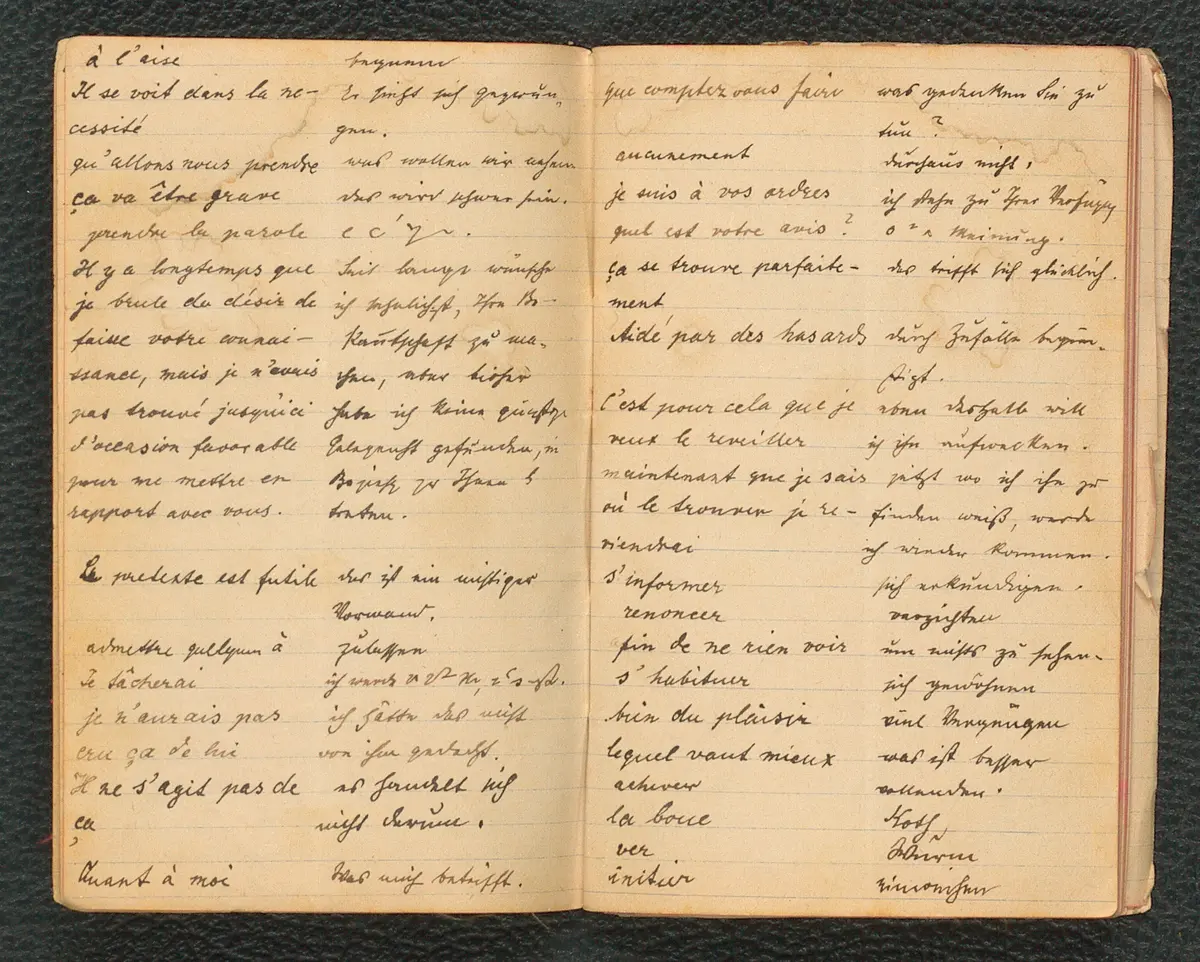 à l'aise
bequem
Il se voit dans la né-
Er sieht sich gezwun-
cessité
gen.
qu'allons nous prendre
was wollen wir nehmen
ça va être grave
das wird schwer sein.
prendre la parole
Il y a longtemps que
Seit lange wünsche
je brule du désir de
ich sehnlichst, Ihre Be-
faire votre connai-
kanntschaft zu ma-
ssance, mais je n'avais
chen, aber bisher
pas trouvé jusqu'ici
habe ich keine günstige
d'occasion favorable
Gelegenheit gefunden, in
pour me mettre en
zu Ihnen
rapport avec vous.
treten.
Le pretente est futile
das ist ein nichtiger
Vorwand.
admettre quelqu'un à
zulassen
Je tâcherai
ich werde
je n'aurais pas
ich hätte das nicht
cru ça de lui
von ihm gedacht.
Il ne s'agit pas de
es handelt sich
ça
nicht darum.
Quant à moi
Was mich betrifft.
que comptez vous faire
was gedenken Sie zu
tun?
aucunement
durchaus nicht.
je suis à vos ordres
ich stehe zu Ihrer
quel est votre avis?
Meinung.
ça se trouve parfaite-
das trifft sich glücklich.
ment
Aidé par des hasards
durch Zufälle begün-
stigt.
C'est pour cela que je
eben deshalb will
veux le reveiller
ich ihn aufwecken.
maintenant que je sais
jetzt wo ich ihn zu
où le trouver je re-
finden weiß, werde
viendrai
ich wieder kommen.
s'informer
sich erkundigen.
renoncer
verzichten
fin de ne rien voir
um nichts zu sehen.
s'habituer
sich gewöhnen
bien du plaisir
viel Vergnügen
lequel vaut mieux
was ist besser
achever
vollenden.
la boue
Koth
ver
Wurm
initier
einweihen